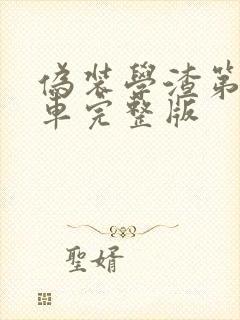 偽裝學渣第
車完整版
聖婿